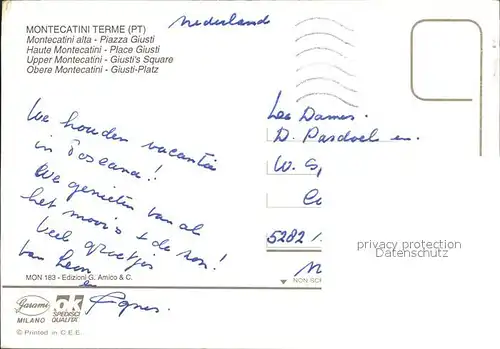 MONTECATINI TERME (PT)
Montecatini alta - Piazza Giusti
Haute Montecatini - Place Giusti
Upper Montecatini - Giusti's Square
Obere Montecatini - Giusti-Platz
Nederland
We houden vacantie
in Toscana!
We genieten van al
het moois + de zon!
Veel groetjes
van Leon
en
Agnes.
Les Dames.
D. Pasdoel en.
W. S,
5282
privacy protection
Datenschutz
MON 183 - Edizioni G. Amico & C.
NON SC
Garami
MILANO
OK
SPEDISCI
QUALITÀ
© Printed in C.E.E.